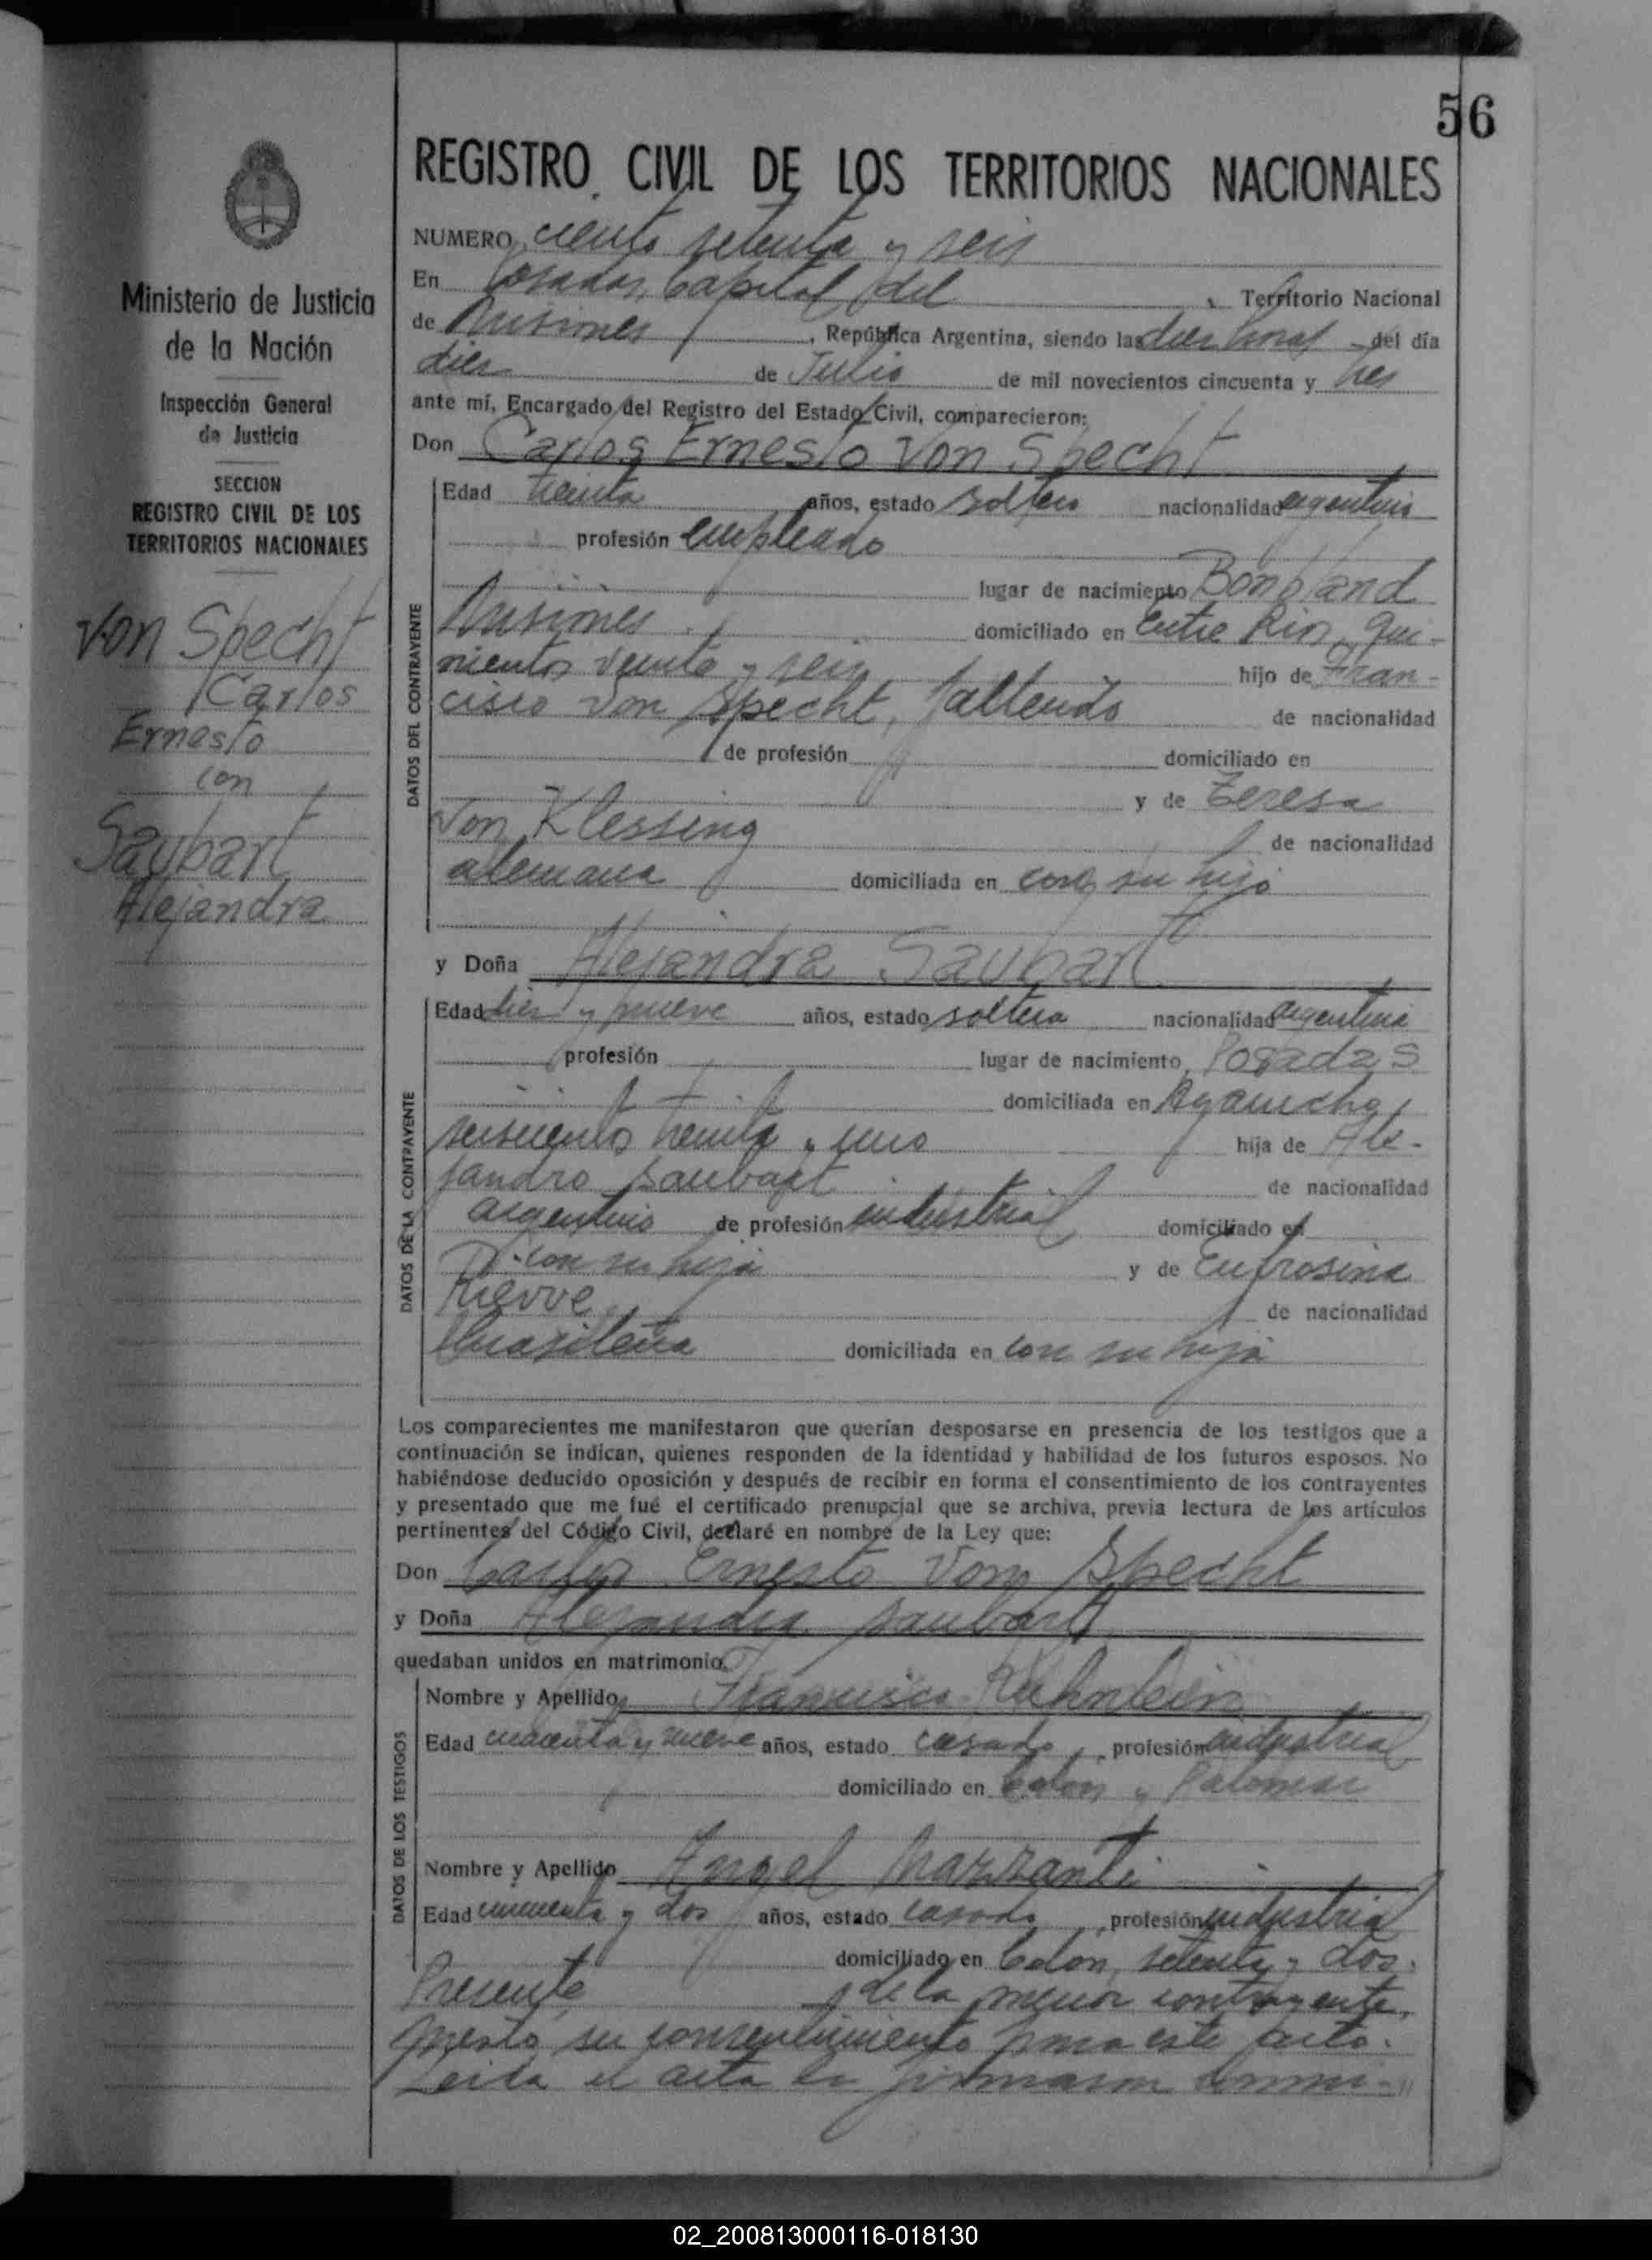 56
REGISTRO CIVIL DE LOS TERRITORIOS NACIONALES
Ministerio de Justicia
de la Nación
Inspección General
de Justicia
SECCION
REGISTRO CIVIL DE LOS
TERRITORIOS NACIONALES
Von Specht
Carlos
Ernesto
con
Saubart
Alejandra
NUMERO ciento setenta y seis
En Posadas, Capital del Territorio Nacional
de Misiones, República Argentina, siendo las diez horas del día
diez de Julio de mil novecientos cincuenta y tres
ante mí, Encargado del Registro del Estado Civil, comparecieron:
Don Carlos Ernesto Von Specht
DATOS DEL CONTRAYENTE
Edad treinta años, estado soltero nacionalidad argentino
profesión empleado
lugar de nacimiento Bonpland
Misiones domiciliado en Entre Rios, qui-
nientos veinte y seis hijo de Fran-
cisco von Specht, fallecido de nacionalidad
de profesión domiciliado en
y de Teresa
Von Klessing de nacionalidad
alemana domiciliada en con su hijo
y Doña Alejandra Saubart
DATOS DE LA CONTRAYENTE
Edad diez y nueve años, estado soltera nacionalidad argentina
profesión lugar de nacimiento Posadas
domiciliada en Ayacucho
seiscientos treinta y uno hija de Ale-
jandro Saubart de nacionalidad
argentino de profesión industrial domiciliado en
con su hija y de Eufrosina
de nacionalidad
brasileña domiciliada en con su hija
Los comparecientes me manifestaron que querían desposarse en presencia de los testigos que a
continuación se indican, quienes responden de la identidad y habilidad de los futuros esposos. No
habiéndose deducido oposición y después de recibir en forma el consentimiento de los contrayentes
y presentado que me fué el certificado prenupcial que se archiva, previa lectura de los artículos
pertinentes del Código Civil, declaré en nombre de la Ley que:
Don Carlos Ernesto Von Specht
y Doña Alejandra Saubart
quedaban unidos en matrimonio.
DATOS DE LOS TESTIGOS
Nombre y Apellido Francisco
Edad cuarenta y nueve años, estado casado, profesión industrial
domiciliado en Colon y Palomar
Nombre y Apellido Angel Mazzanti
Edad cincuenta y dos años, estado casado, profesión industrial
domiciliado en Colon, setenta y dos.
Presente de la menor contrayente,
prestó su consentimiento para este acto.
Leida el acta la firmaron
02_200813000116-018130